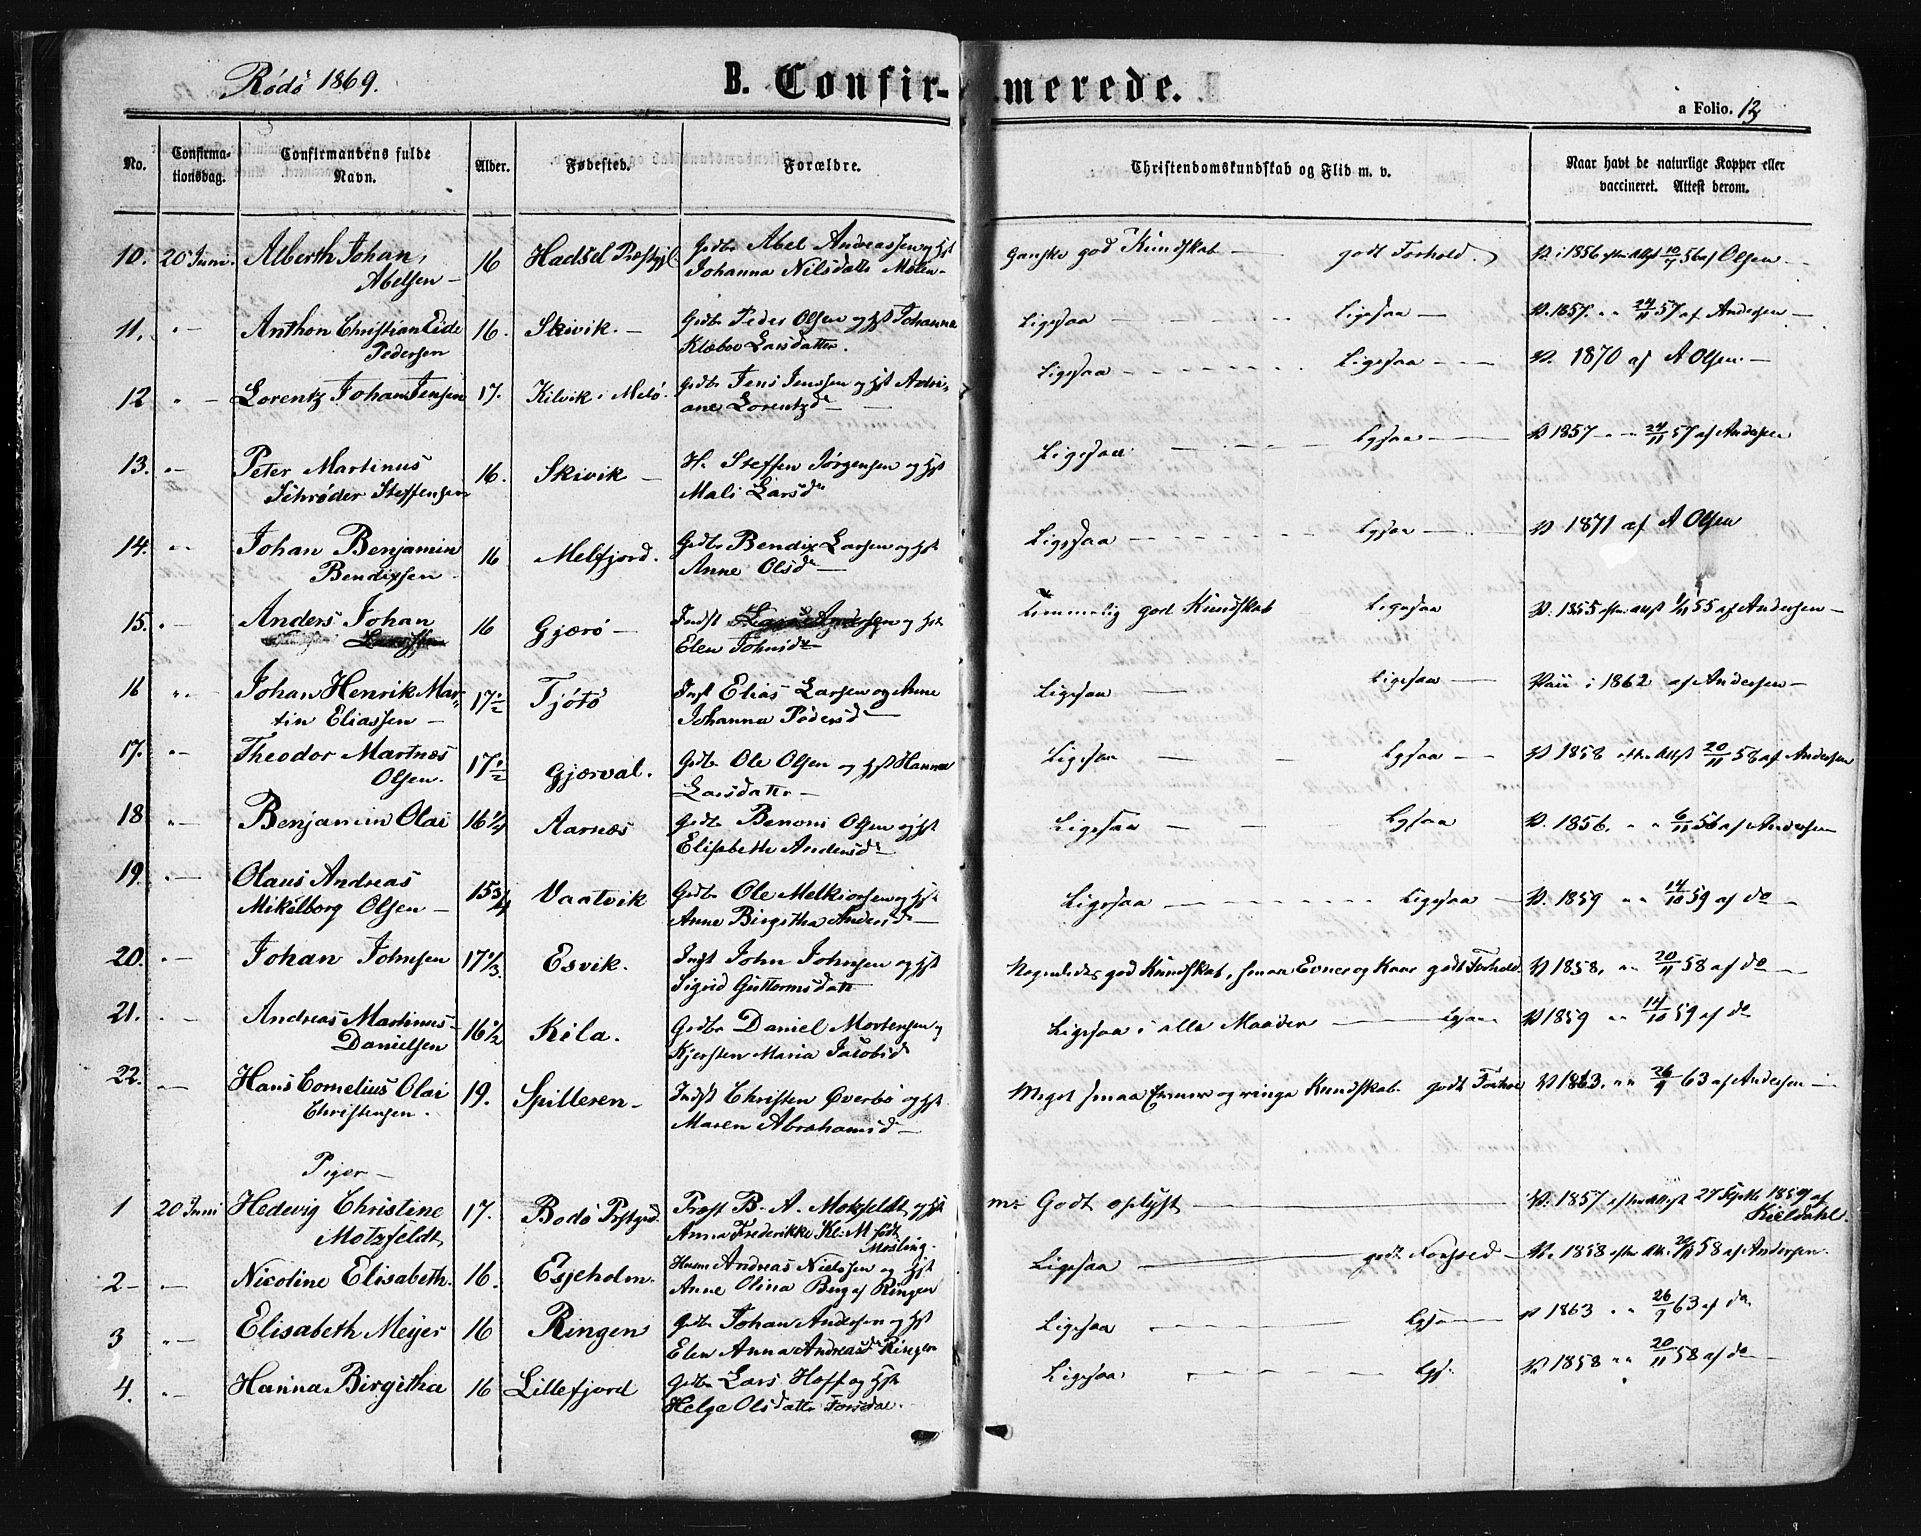 Rødø 1869.
B. Confirmerede.
a Folio. 12
No. Confirmationsdag. Confirmandens fulde Navn. Alder. Fødested. Forældre. Christendomskundskab og Flid m. v. Naar havt de naturlige Kopper eller vaccineret. Attest derom.
10. 20 Juni Alberth Johan 16 Hadsel Præstgjl. Gdbr Abel Andreassen og Hst ganske god Kundskab — godt Forhold. V. i 1856 efter Attst 10/11 56 af Olsen
Abelsen — Johanna Nilsdattr
11. " — Anthon Christian Eide 16. Skivik. — Gdbr Peder Olsen og Hst Johanna Ligesaa — Ligesaa — V. 1857. " " 24/11 57 af Andersen —
Pedersen Klæboe Larsdatter.
12 " — Lorentz Johan Jensen 17. Kilvik i Melø. Gdbr Jens Jenssen og Hst Adri- Ligesaa — Ligesaa — V. 1870 af A Olsen —
ane Lorentzd —
13. " — Peter Martinus 16. Skivik — H. Steffen Jørgensen og Hst Ligesaa — Lgsaa — V 1857 " — 24/11 57 af Andersen
Schrøder Steffensen Mali Larsd
14. " " Johan Benjamin 16 Melfjord. Gdbr Bendix Larsen og Hst Ligesaa — Lgsaa — V 1871 af A Olsen
Bendixsen Anne Olsd —
15. " — Anders Johan 16 Gjærø — Indst og Hst Temmelig god Kundskab — Ligesaa V. 1855 efter Attst 1/11 55 af Andersen —
Elen Johnsd
16 " — Johan Henrik Mar- 17 1/2 Tjøtø Inst Elias Larsen og Anne Ligesaa — Ligesaa — Vacc i 1862 af Andersen —
tin Eliassen — Johanna Pedersd —
17. " — Theodor Martnæs 17 1/2 Gjærval. Gdbr Ole Olsen og Hst Hanna Ligesaa — Lgsaa — V 1858 efter Attst 20/11 58 af Andersen
Olsen. Larsdattr —
18 " — Benjamin Olai 16 1/4 Aarnæs Gdbr Benoni Olsen og Hst Ligesaa — Lgsaa V. 1856. " " 6/11 56 af Andersen
Elisabeth Andersd —
19. " — Olaus Andreas 15 3/4 Vaatvik Gdbr Ole Melkiorsen og Hst Ligesaa — Ligesaa — V. 1859 " " 14/10 59 af do —
Mikelborg Olsen — Anne Birgitha Andersd —
20. " — Johan Johnsen 17 1/3. Esvik. Inst John Johnsen og Hst Nogenledes god Kundskab, smaa Evner og Kaar godt Forhold. V 1858, " " 20/11 58 af do —
Sigrid Guttormsdattr
21. " — Andreas Martinus 16 1/2 Kila. Gdbr Daniel Mortensen og Ligesaa i alle Maader — Lgsaa V 1859 " " 14/10 59 af do
Danielsen Kjersten Maria Jacobsd
22. " — Hans Cornelius Olai 19. Spilderen — Indst Christen Øverbø og Hst Meget smaa Evner og ringe Kundskab. godt Forhold V 1863. " " 26/9 63 af Andersen —
Christensen. Maren Abrahamsd —
Piger —
1 20 Juni Hedevig Christine 17. Bodø Prstgjd. Præst B. A. Motzfeldt og Hst Godt oplyst — V. 1857 efter Attest 27 Septb 1859 af
Motzfeldt, Anna Frederikke Kl: M født Kieldahl.
Mosling.
2 - " — Nicoline Elisabeth. 16. Esjeholm. Husm Andreas Nielssen og Hst Ligesaa — godt Forhold — V. 1858 efter Att. 20/11 58 af Andersen.
Anne Olina Berg af Ringen
3 " — Elisabeth Meyer 16 Ringen Gdbr Johan Andersen og Hst Ligesaa — Lgsaa — V 1863 " " 26/9 63 af do
Elen Anna Andreasd Ringen
4. " — Hanna Birgitha 16 Lillefjord Gdbr Lars Hoff og Hst Ligesaa. — Lgs. V. 1858 " " 20/11 58 af do —
Helge Olsdattr Forsdal.